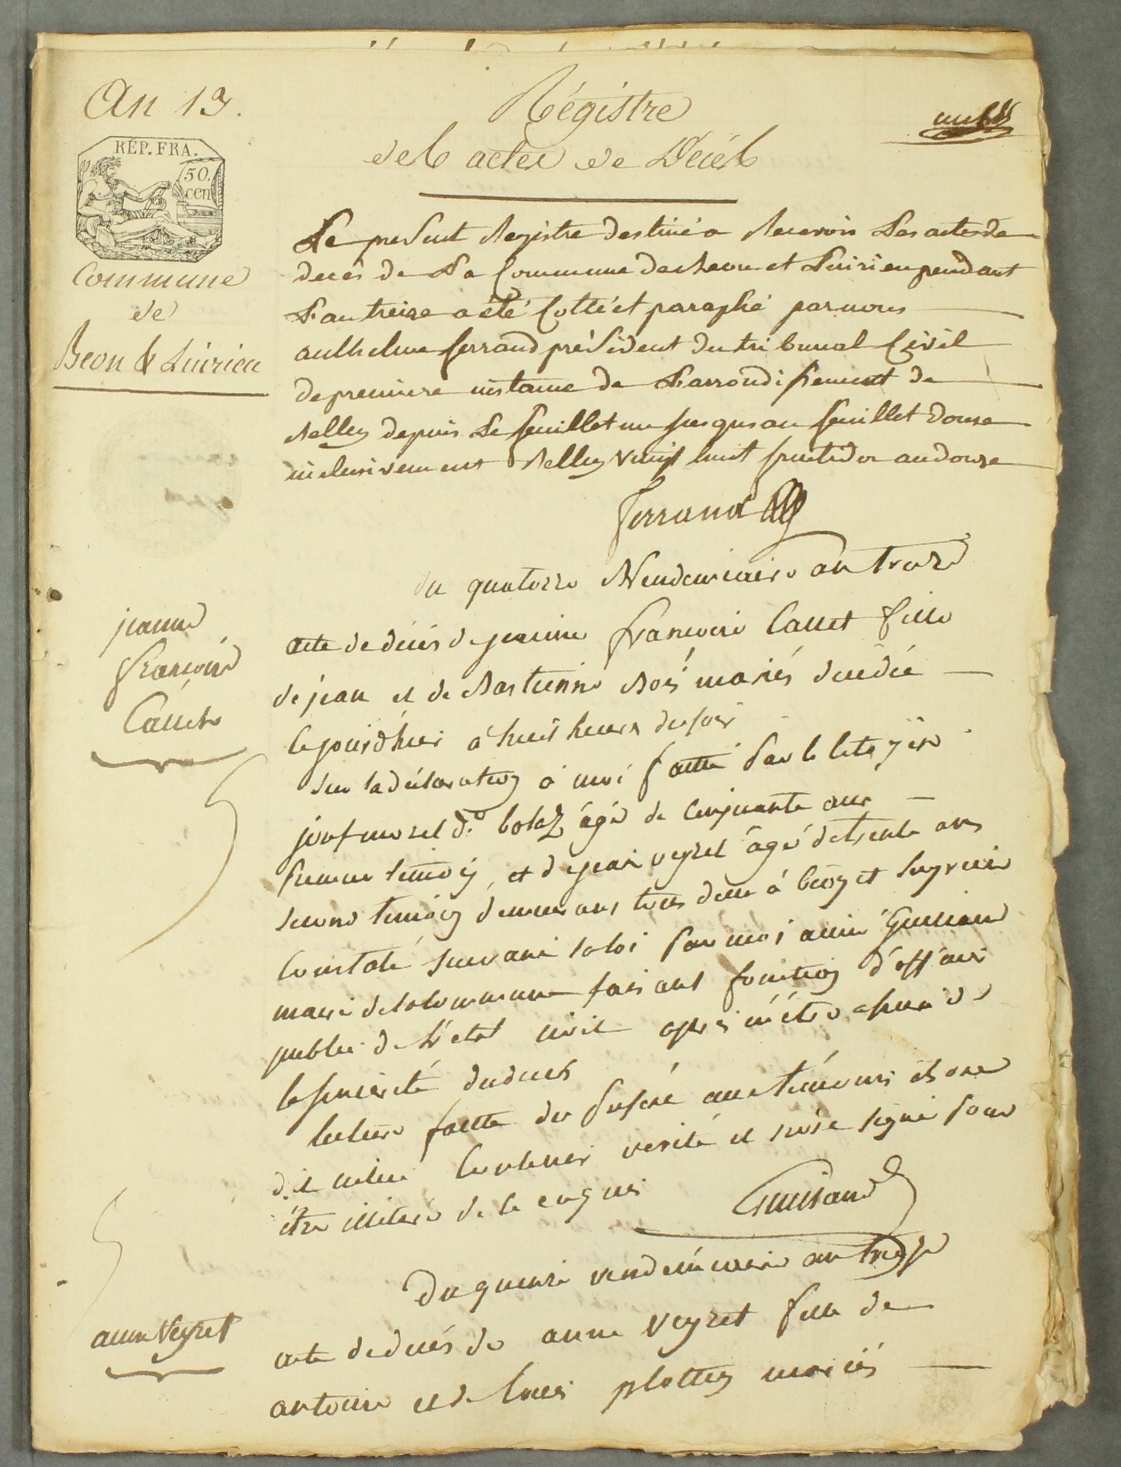 An 13.
RÉP. FRA.
50.
cen
Commune
de
Beon & Luirieu
Régistre
des actes de Décés
Le present Registre destiné a Recevoir Les actes de
decés de La Commune de et Luirieu pendant
L'an treize a été Cotté et paraphé par nous
anthelme ferrand président du tribunal Civil
de premiere instance de Larrondissement de
Belley depuis Le feuillet un jusquau feuillet douze
inclusivement Belley vingt huit fructidor an douze
ferrand
du quatorze Vendemiaire an treize
jeanne
françoise
Callet
acte de décés de jeanne françoise Callet fille
de jean et de Bastienne Boi mariés decedée
cejourd'hui à huit heures du soir
sur la déclaration à moi faitte par le citoyen
josef morel d. bolaz âgé de cinquante ans
premier temoin, et de jean veyret âgé de trente ans
second temoin demeurans tous deux à beon et luyrieu
Constaté suivant la loi par moi aimé Guilland
maire de la commune faisant fonction d'officier
public de L'etat civil après m'être assuré de
la sincerité du decés
lecture faitte du présé aux temoins ils ont
dit icelui contenir verité et n'ont signé pour
être illiteré de ce enquis
Guilland
Du quinze vendemiaire an treize
anne Veyret
acte de decés de anne Veyret fille de
antoine et de plottey mariés